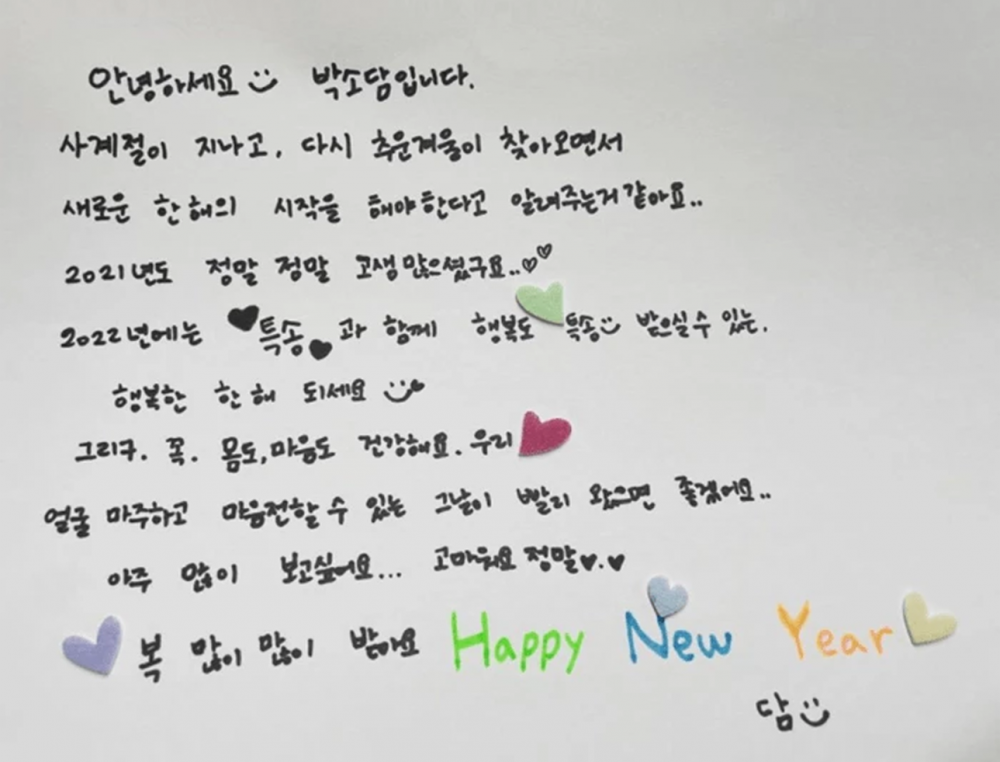 안녕하세요 박소담입니다.
사계절이 지나고, 다시 추운겨울이 찾아오면서
새로운 한해의 시작을 해야한다고 알려주는거 같아요..
2021년도 정말 정말 고생많으셨구요..♡♡
2022년에는 ♥특송♥과 함께 행복도 특송 받으실 수 있는,
행복한 한해 되세요
그리구. 꼭. 몸도, 마음도 건강해요. 우리
얼굴 마주하고 마음전할 수 있는 그날이 빨리 왔으면 좋겠어요..
아주 많이 보고싶어요... 고마워요 정말♥.♥
복 많이 많이 받아요 Happy New Year
담